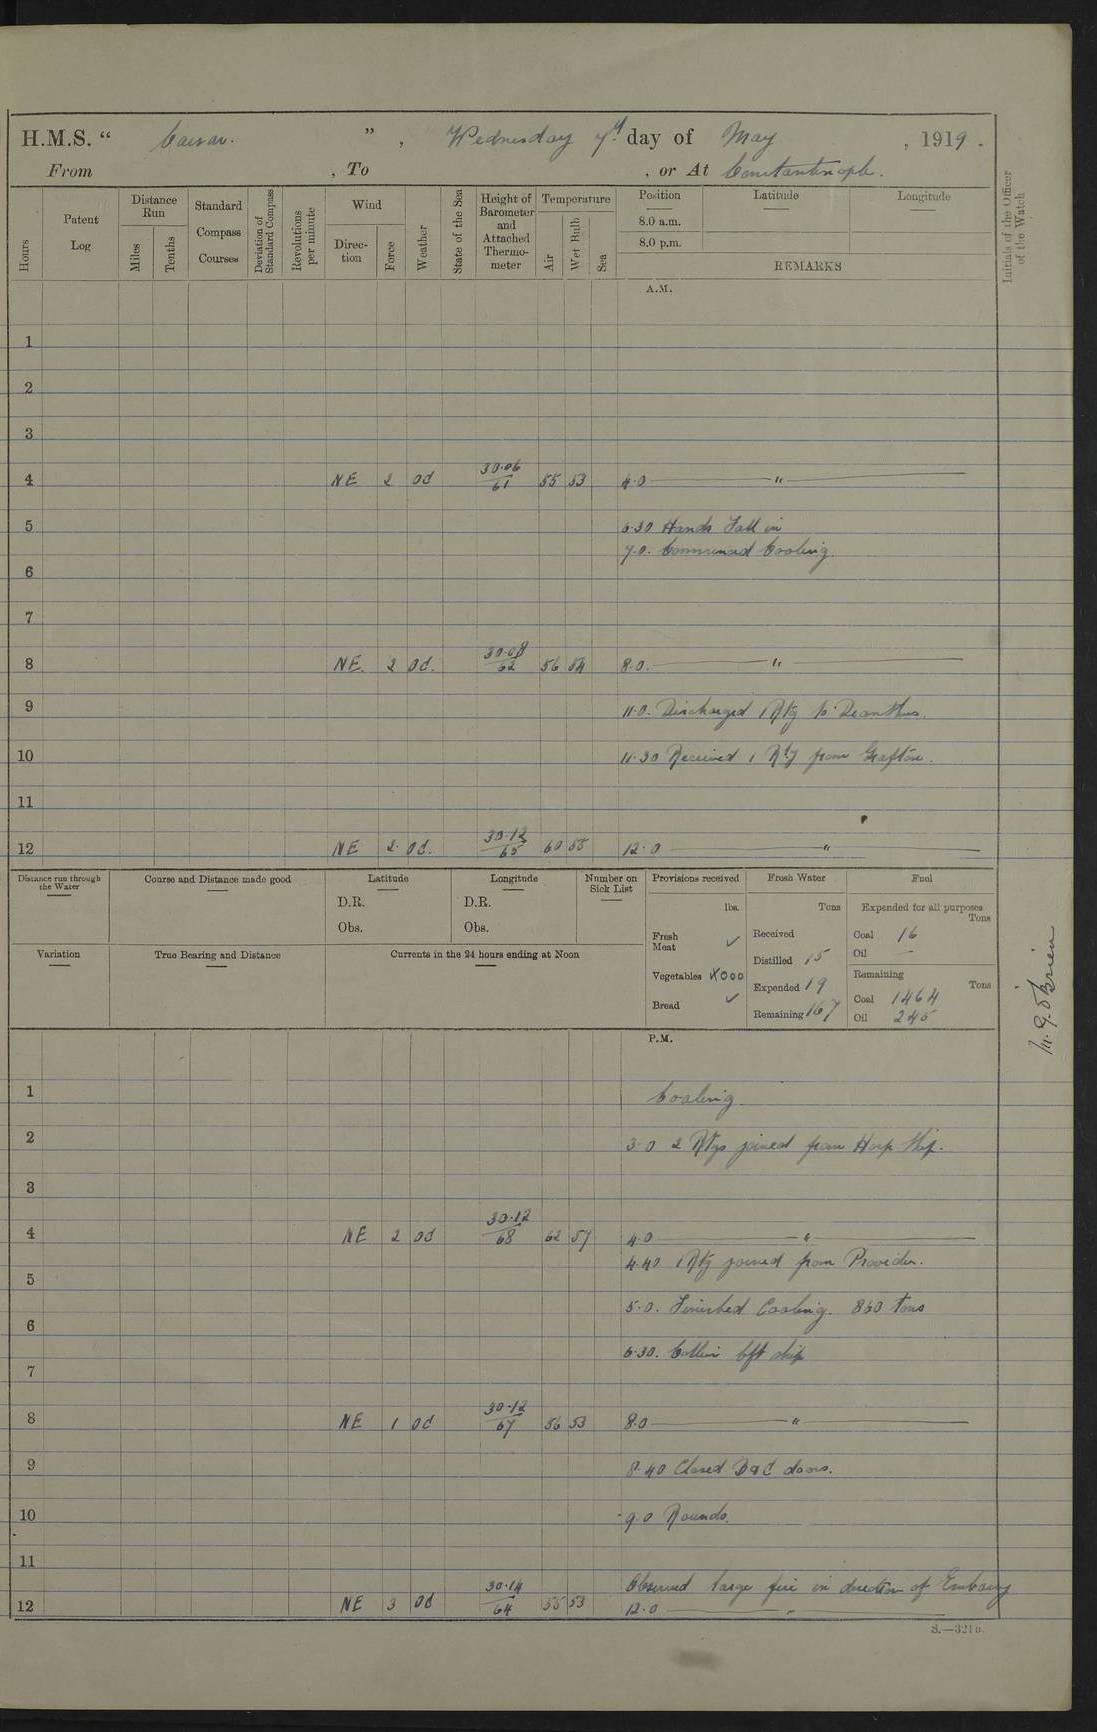 H.M.S. “ Caesar. ” , Wednesday 7th day of May , 1919 .
From , To , or At Constantinople.
Hours
Patent Log
Distance Run
Miles
Tenths
Standard Compass Courses
Deviation of Standard Compass
Revolutions per minute
Wind
Direction
Force
Weather
State of the Sea
Height of Barometer and Attached Thermometer
Temperature
Air
Wet Bulb
Sea
Position
8.0 a.m.
8.0 p.m.
Latitude
Longitude
REMARKS
Initials of the Officer of the Watch
A.M.
1
2
3
4 NE 2 od 30·06/61 55 53 4·0 "
5 6·30 Hands Fall in
7·0. Commenced Coaling.
6
7
8 NE. 2 od. 30·08/62 56 54 8·0. "
9 11·0. Discharged 1 Rtg to Dianthus.
10 11·30 Received 1 Rtg from Grafton.
11
12 NE 2· od. 30·12/65 60 55 12·0 "
Distance run through the Water
Course and Distance made good
Latitude
D.R.
Obs.
Longitude
D.R.
Obs.
Number on Sick List
Provisions received
lbs.
Fresh Meat ✓
Vegetables 4000
Bread ✓
Fresh Water
Tons
Received
Distilled 15
Expended 19
Remaining 167
Fuel
Expended for all purposes
Tons
Coal 16
Oil —
Remaining
Tons
Coal 1464
Oil 245
Variation
True Bearing and Distance
Currents in the 24 hours ending at Noon
M. G. O'Brien
P.M.
1 Coaling.
2 3·0 2 Rtgs joined from Hosp Ship.
3
4 NE 2 od 30·12/68 62 57 4·0 "
4·40 1 Rtg joined from Provider.
5 5·0. Finished Coaling. 860 tons
6 6·30. Collier left ship
7
8 NE 1 od 30·12/67 56 53 8·0 "
9 8·40 Closed B & C doors.
10 9·0 Rounds.
11 Observed large fire in direction of Embassy
12 NE 3 od 30·14/64 55 53 12·0 "
S.—321